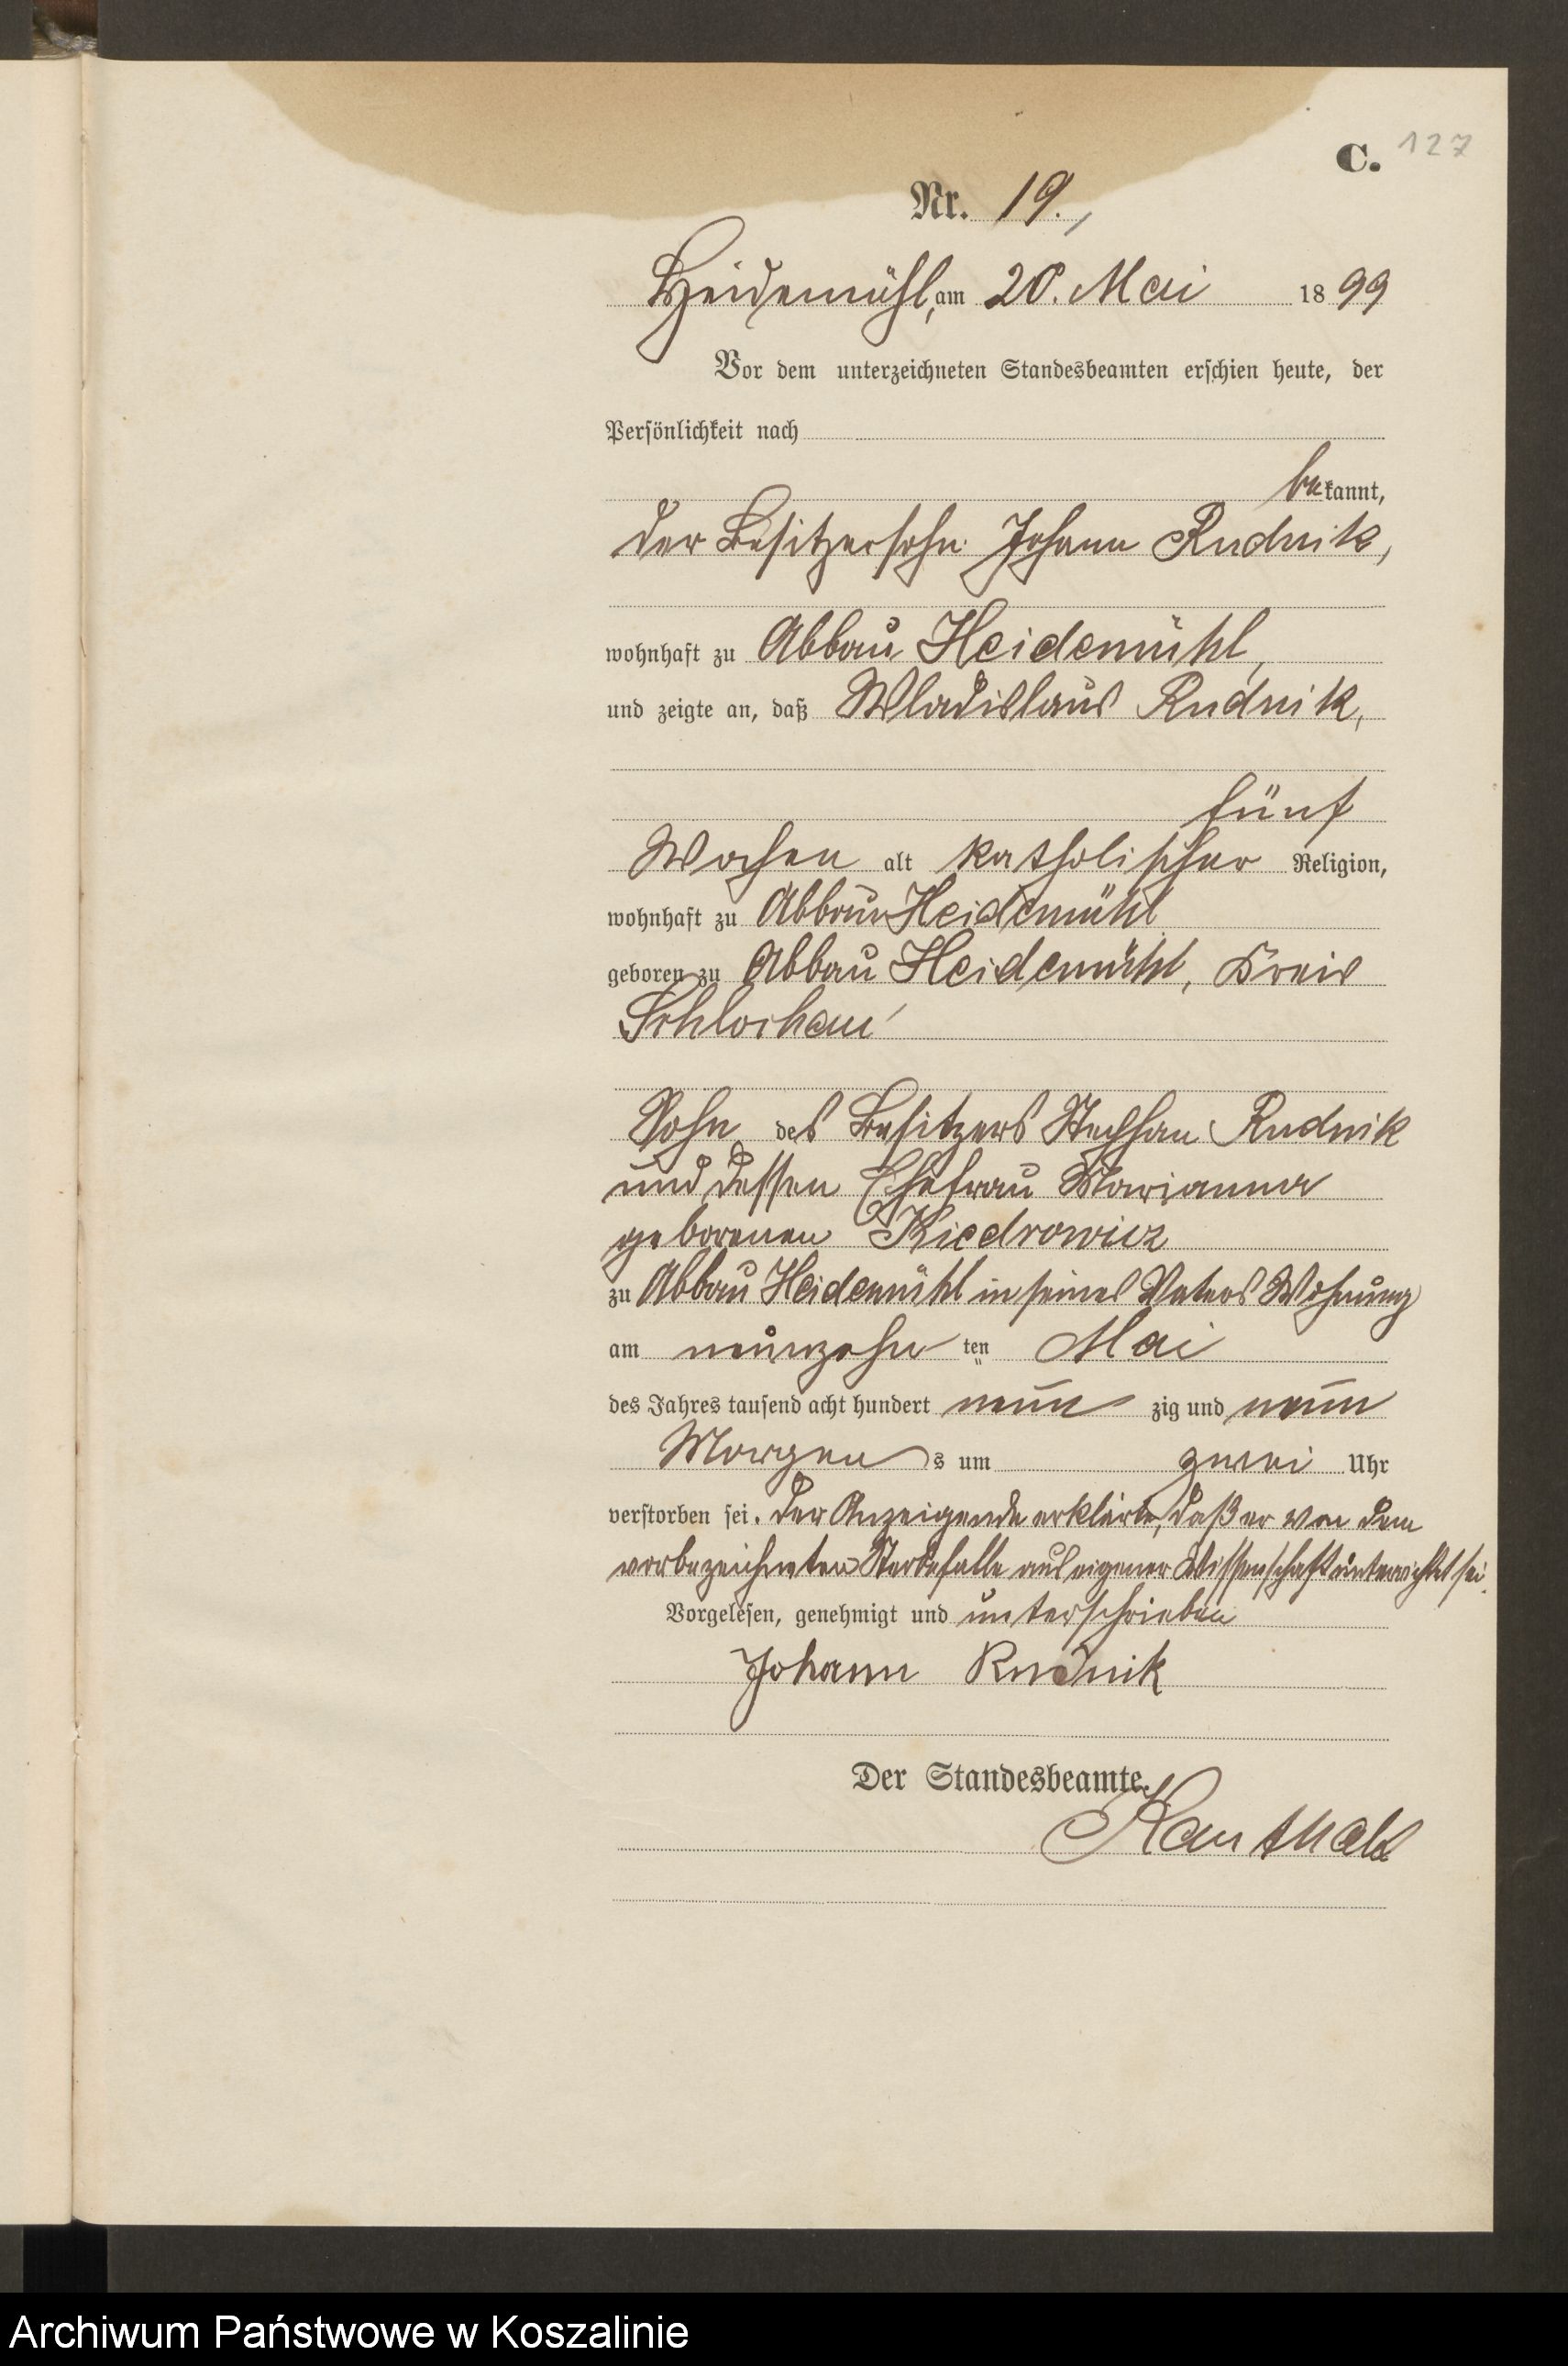 C. 127
Nr. 19.
Heidemühl, am 20. Mai 1899
Vor dem unterzeichneten Standesbeamten erschien heute, der
Persönlichkeit nach
bekannt,
der Besitzersohn Johann Rudnik,
wohnhaft zu Abbau Heidemühl,
und zeigte an, daß Wladislaus Rudnik,
fünf
Wochen alt katholischer Religion,
wohnhaft zu Abbau Heidemühl
geboren zu Abbau Heidemühl, Kreis
Schlochau
Sohn des Besitzers Stephan Rudnik
und dessen Ehefrau Marianna
geborenen Kiedrowicz
zu Abbau Heidemühl in seines Vaters Wohnung
am neunzehnten Mai
des Jahres tausend acht hundert neunzig und neun
Morgens um zwei Uhr
verstorben sei. Der Anzeigende erklärte, daß er von dem
vorbezeichneten Sterbefalle aus eigener Wissenschaft unterrichtet sei.
Vorgelesen, genehmigt und unterschrieben
Johann Rudnik
Der Standesbeamte.
Archiwum Państwowe w Koszalinie